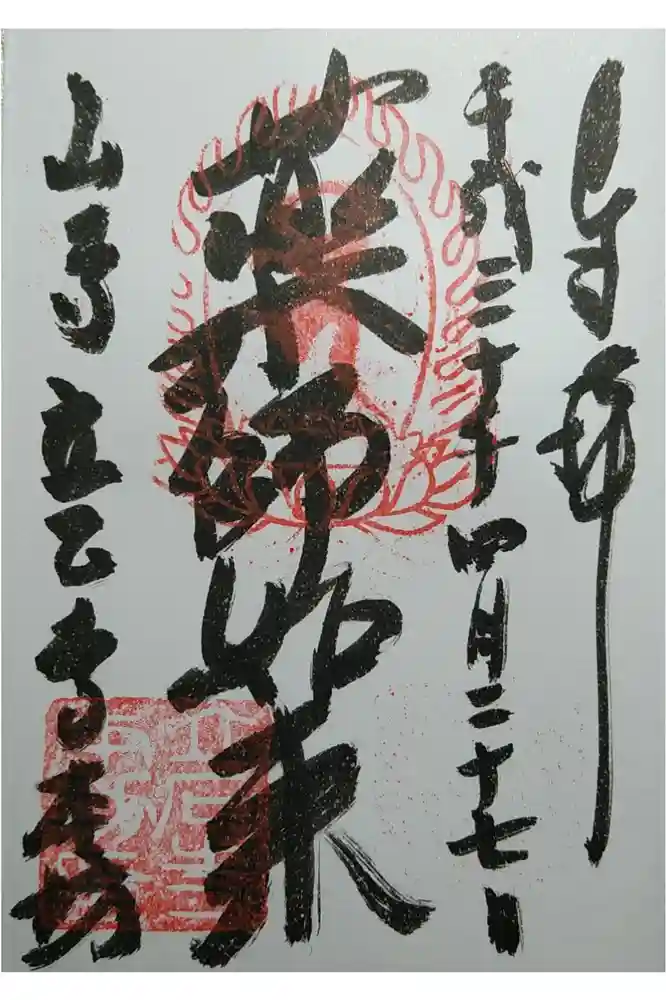 奉拝
平成三十年四月二十七日
薬師如来
山寺立石寺本坊